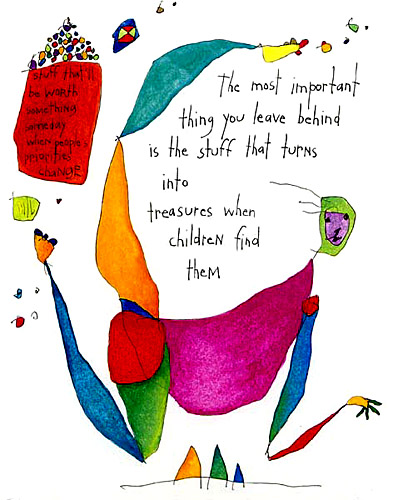 stuff that'll
be worth
something
someday
when people's
priorities
change
The most important
thing you leave behind
is the stuff that turns
into
treasures when
children find
them